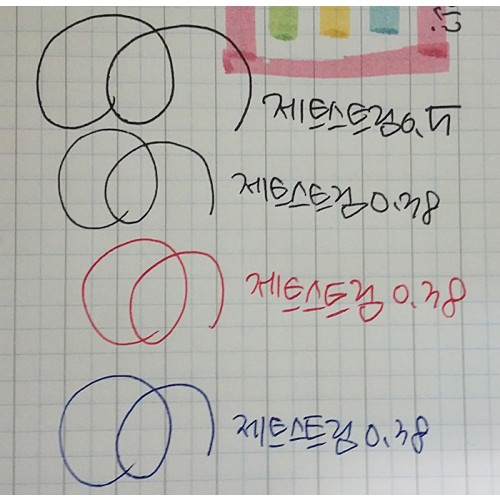 제트스트림 0.5
제트스트림 0.38
제트스트림 0.38
제트스트림 0.38